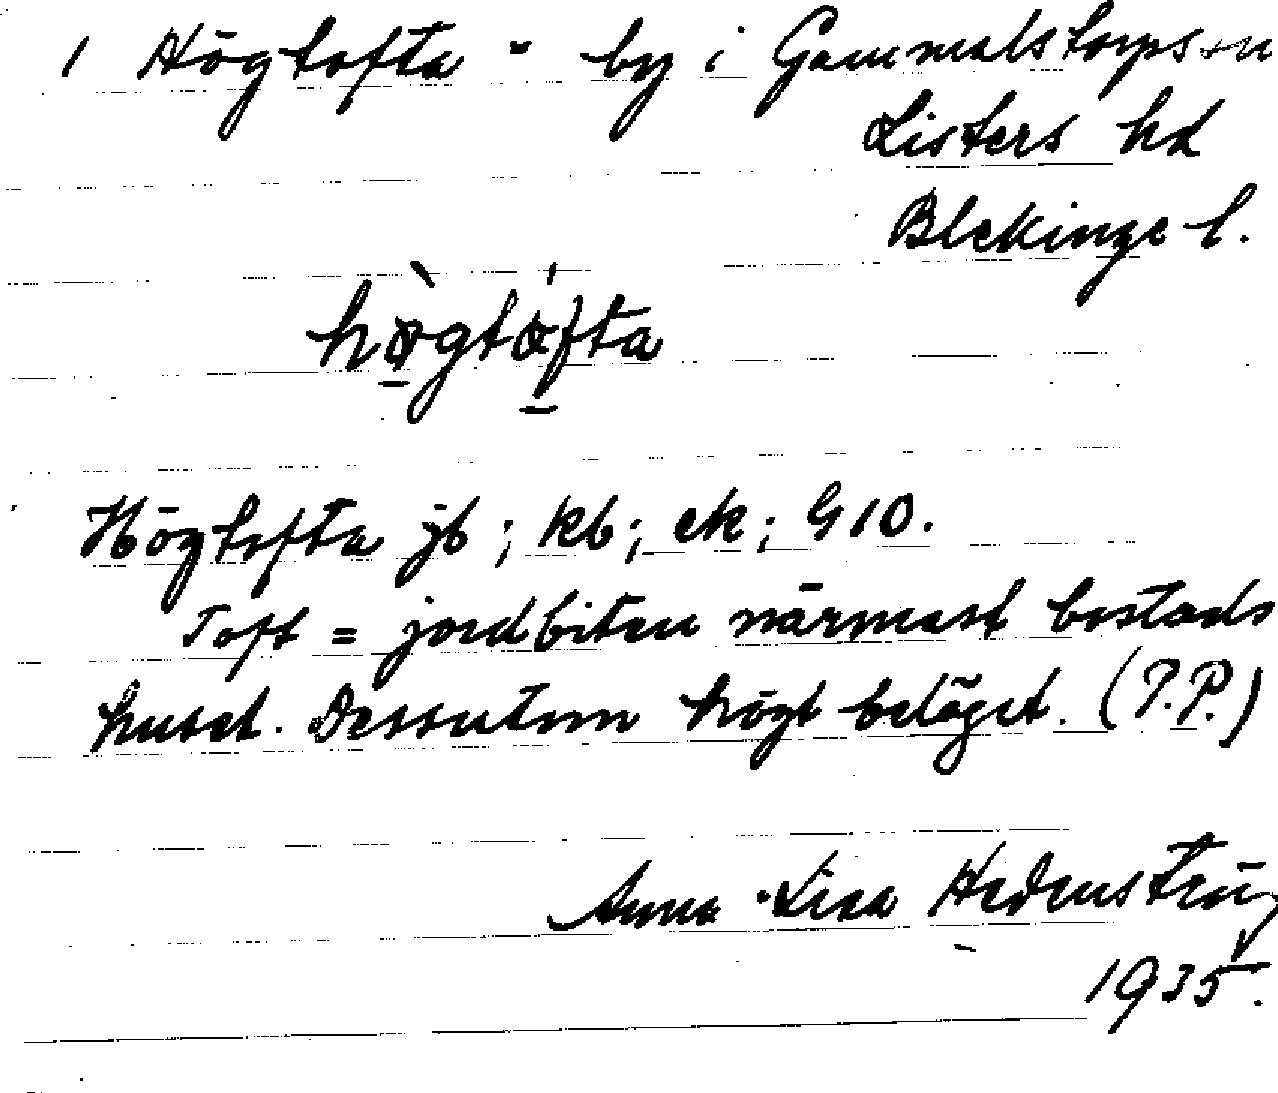 1 Högtofta - by i Gammalstorps sn
Listers hd
Blekinge l.
högtofta
Högtofta jb; kb; ek; G10.
Toft = jordbiten närmast bostads
huset. Dessutom högt beläget. (P.P.)
Anna-Lisa
1935.